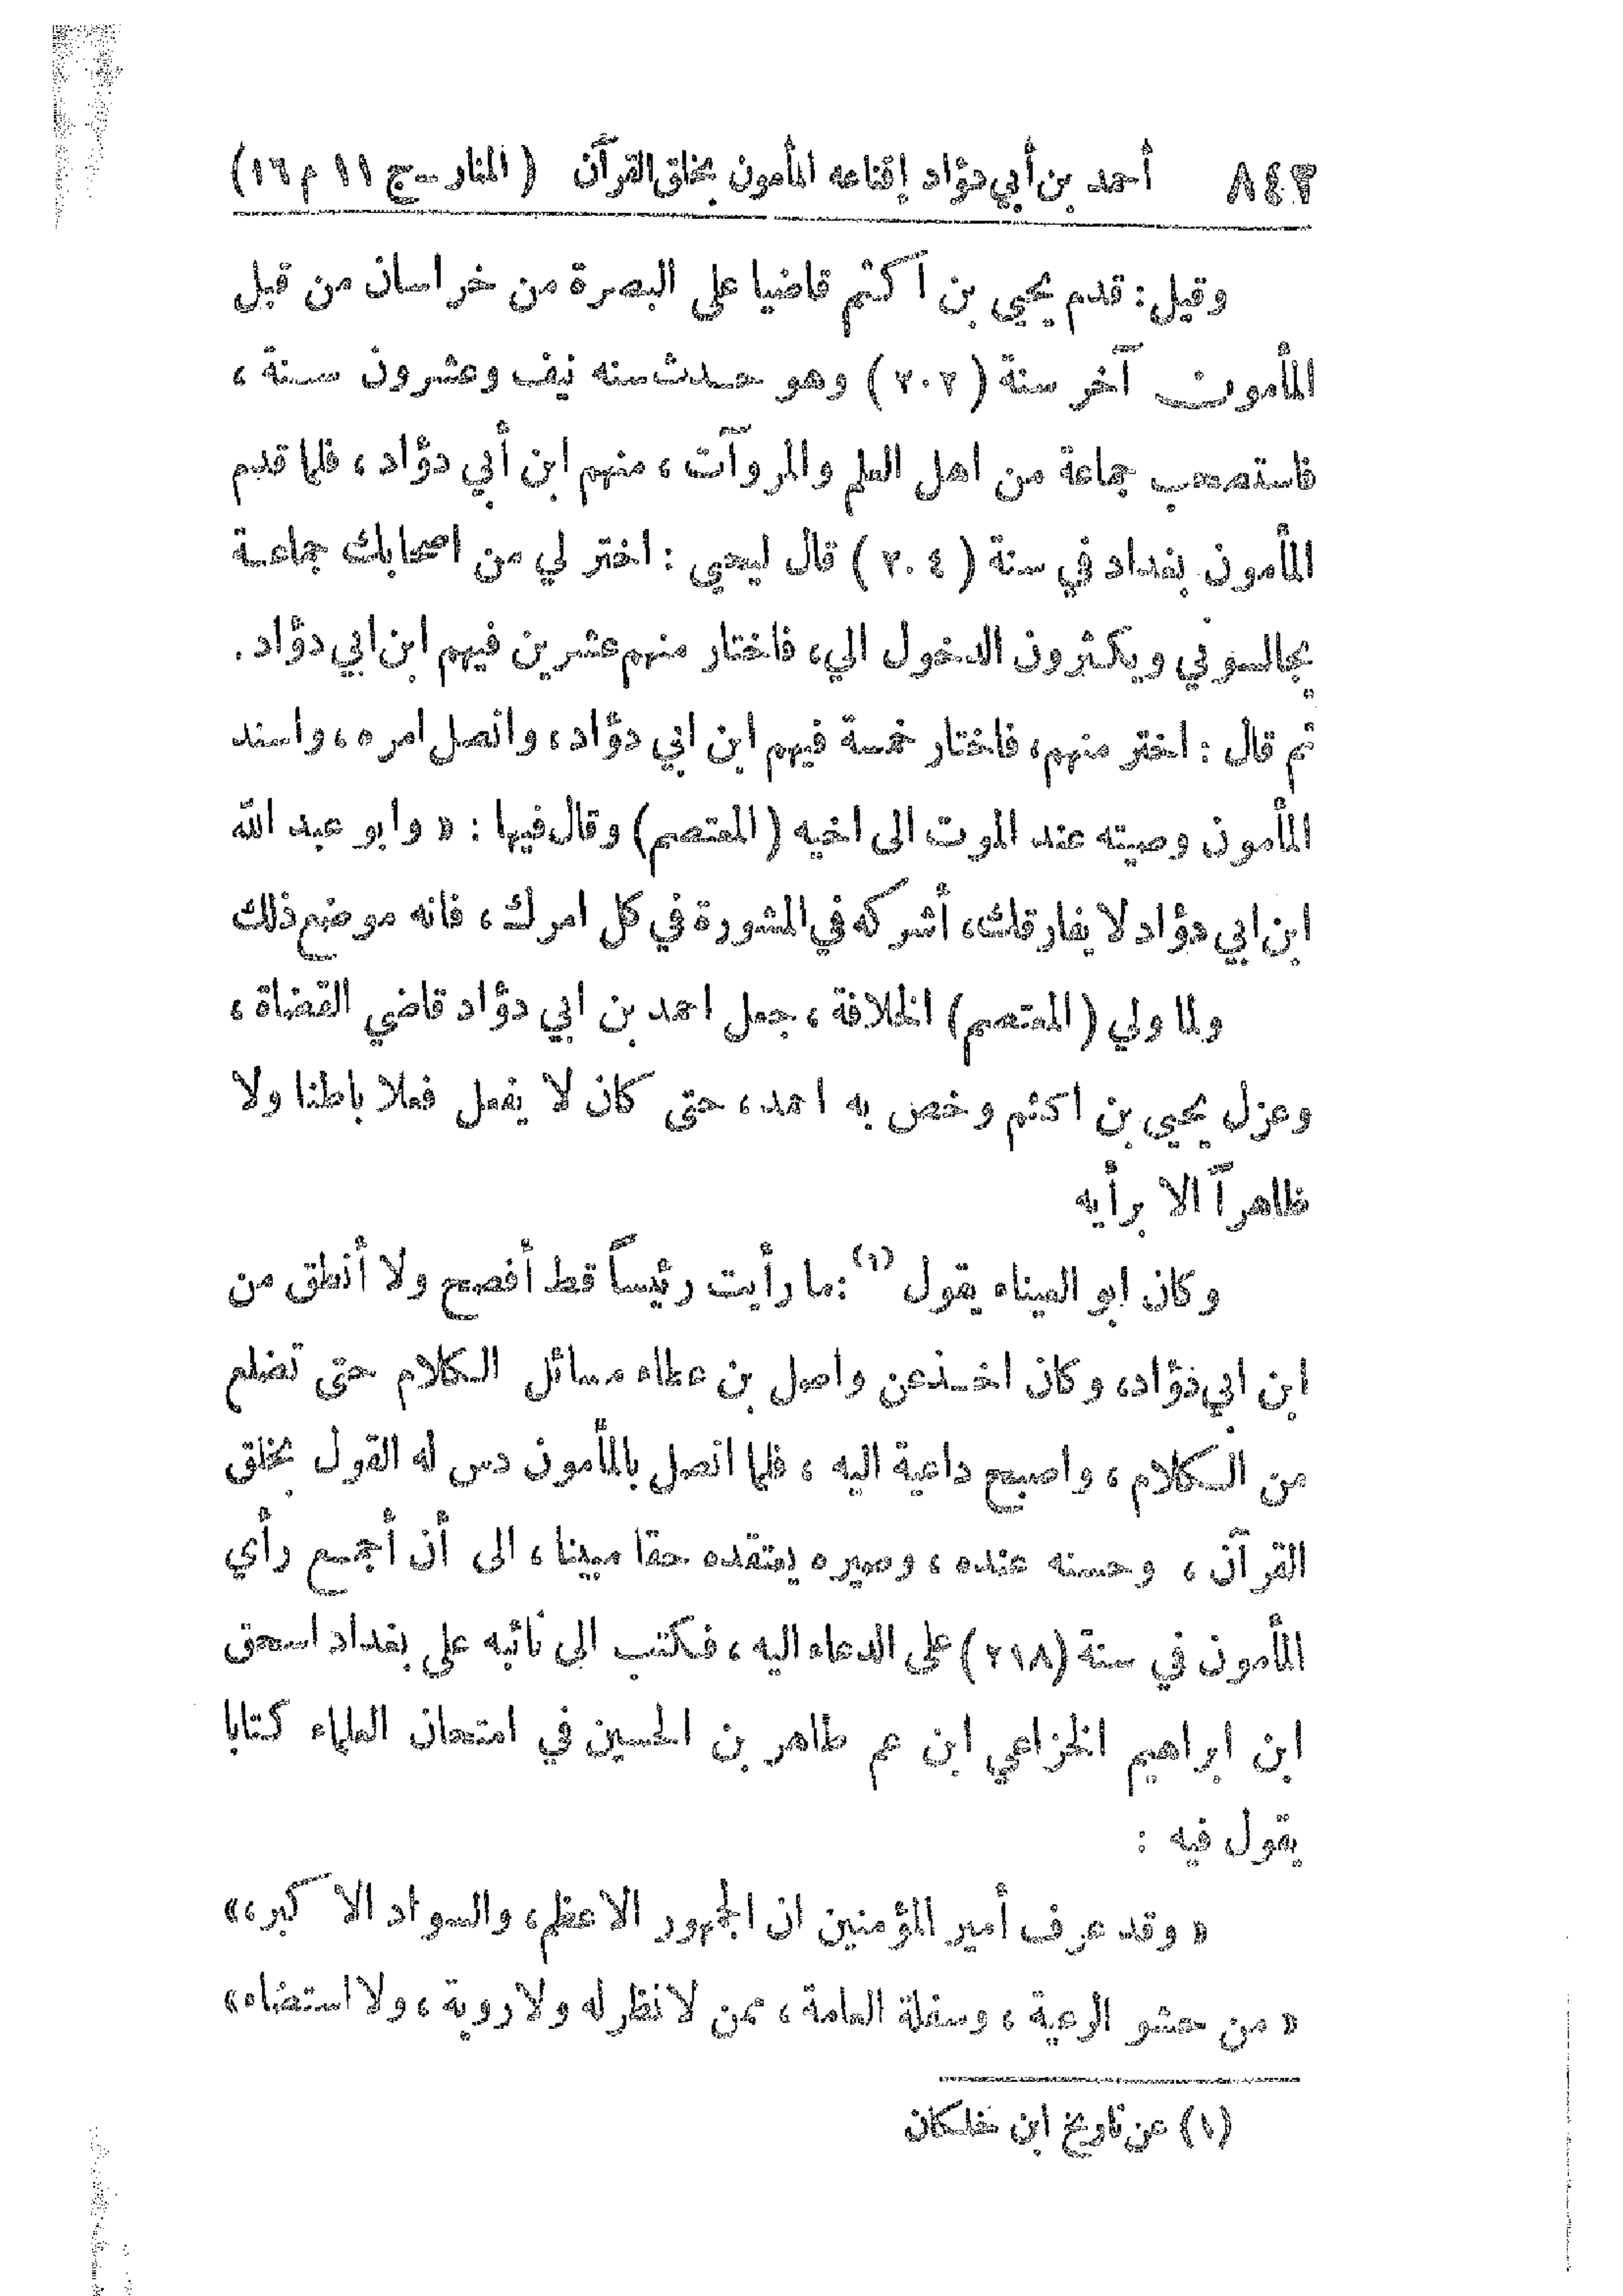 ٨٤٢ أحمد بن أبي دؤاد إقناعه المأمون بخلق القرآن ( المنار – ج ١١ م ١٦)
وقيل: قدم يحيى بن اكثم قاضيا على البصرة من خراسان من قبل
المأمون آخر سنة (٢٠٢) وهو حدث سنه نيف وعشرون سنة ،
فاستصحب جماعة من اهل العلم والمروآت ، منهم ابن أبي دؤاد ، فلما قدم
المأمون بغداد في سنة (٢٠٤) قال ليحيى : اختر لي من اصحابك جماعة
يجالسوني ويكثرون الدخول الي، فاختار منهم عشرين فيهم ابن ابي دؤاد .
ثم قال : اختر منهم، فاختار خمسة فيهم ابن ابي دؤاد، واتصل امره ، واسند
المأمون وصيته عند الموت الى اخيه (المعتصم) وقال فيها : « وابو عبد الله
ابن ابي دؤاد لا يفارقك، أشركه في المشورة في كل امرك ، فانه موضع ذلك
ولما ولي (المعتصم) الخلافة ، جعل احمد بن ابي دؤاد قاضي القضاة ،
وعزل يحيى بن اكثم وخص به احمد ، حتى كان لا يفعل فعلا باطنا ولا
ظاهراً الا برأيه
وكان ابو العيناء يقول (١) : ما رأيت رئيساً قط أفصح ولا أنطق من
ابن ابي دؤاد، وكان اخذ عن واصل بن عطاء مسائل الكلام حتى تضلع
من الكلام ، واصبح داعية اليه ، فلما اتصل بالمأمون دس له القول بخلق
القرآن ، وحسنه عنده ، وصيره يعتقده حقا مبينا ، الى أن أجمع رأي
المأمون في سنة (٢١٨) على الدعاء اليه ، فكتب الى نائبه على بغداد اسحق
ابن ابراهيم الخزاعي ابن عم طاهر بن الحسين في امتحان العلماء كتابا
يقول فيه :
« وقد عرف أمير المؤمنين ان الجمهور الاعظم، والسواد الاكبر، »
« من حشو الرعية ، وسفلة العامة ، ممن لا نظر له ولا روية ، ولا استضاء »
(١) عن تاريخ ابن خلكان